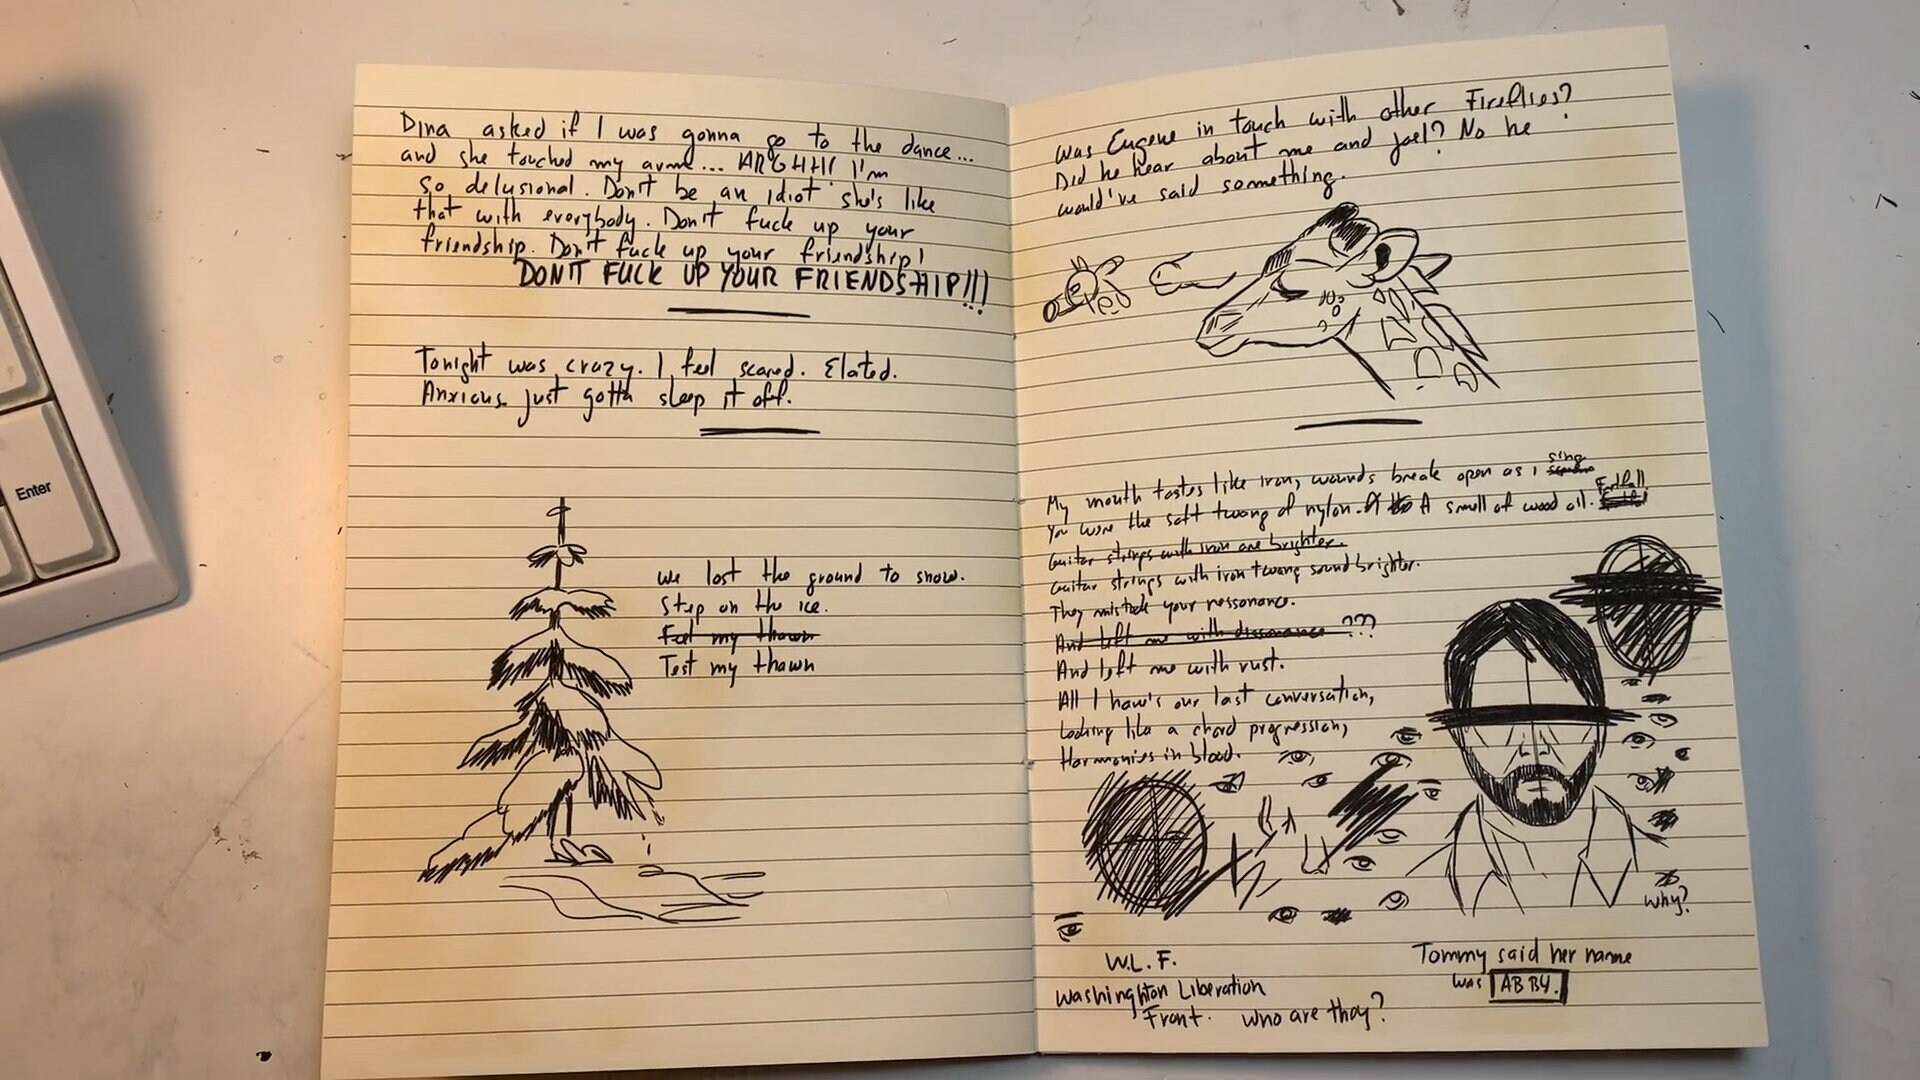 Enter
Dina asked if I was gonna go to the dance...
and she touched my arm... ARGHH! I'm
so delusional. Don't be an idiot she's like
that with everybody. Don't fuck up your
friendship. Don't fuck up your friendship!
DON'T FUCK UP YOUR FRIENDSHIP!!!
Tonight was crazy. I feel scared. Elated.
Anxious just gotta sleep it off.
We lost the ground to snow.
Step on the ice.
Feel my thawn
Test my thawn
Was Eugene in touch with other Fireflies?
Did he hear about me and Joel? No he
would've said something.
My mouth tastes like iron, wounds break open as i sing
You were the soft twang of nylon. A smell of wood oil.
Guitar strings with iron are brighter.
Guitar strings with iron twang sound brighter.
They mistook your ressonance.
And left me with dissonance ???
And left me with rust.
All I have's our last conversation,
Looking like a chord progression,
Harmonies in blood.
why?
W.L.F.
Washinghton Liberation
Front. who are they?
Tommy said her name
was ABBY.